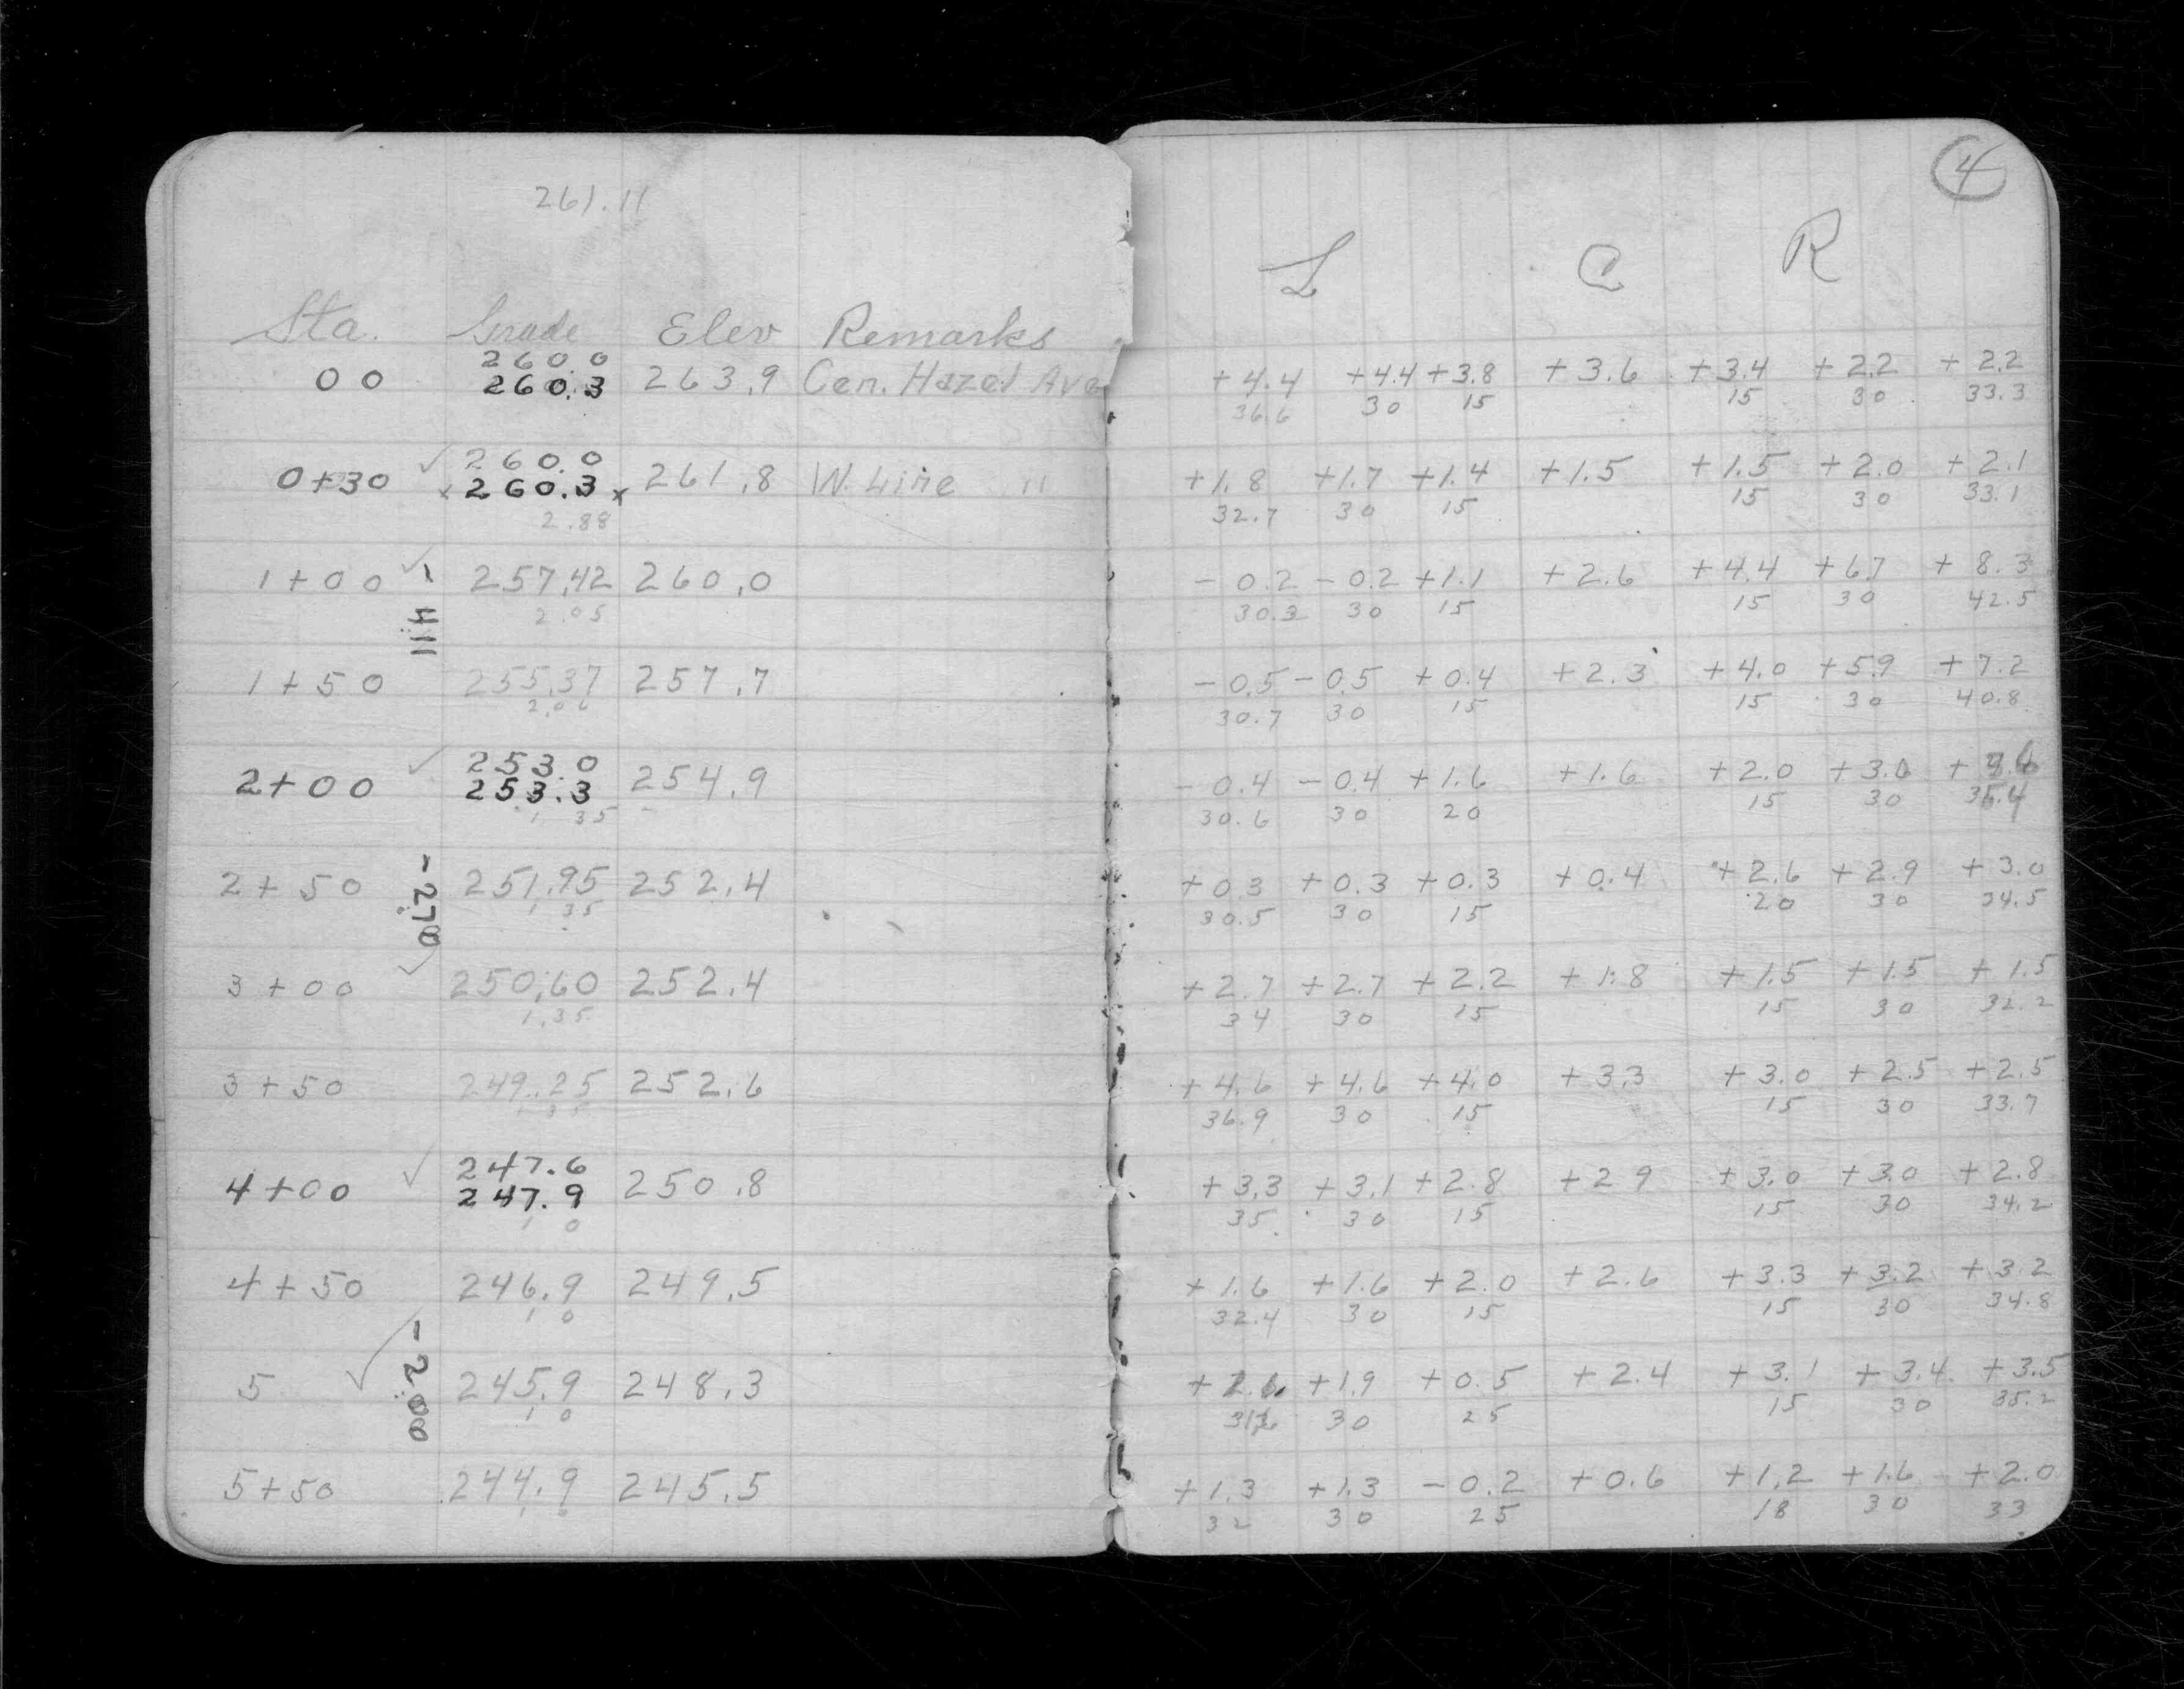 261.11
Sta. Grade Elev Remarks
260.0
00 260.3 263.9 Cen. Hazel Ave
260.0
0+30 260.3 261.8 W. Line "
2.88
1+00 257.42 260.0
2.05
- 4.11
1+50 255.37 257.7
2.06
253.0
2+00 253.3 254.9
1 35
2+50 251.95 252.4
1 35
- 2.70
3+00 250.60 252.4
1.35
3+50 249.25 252.6
1 35
247.6
4+00 247.9 250.8
1 0
4+50 246.9 249.5
1 0
5 245.9 248.3
1 0
- 2.00
5+50 244.9 245.5
1 0
4
L C R
+4.4 +4.4 +3.8 +3.6 +3.4 +2.2 +2.2
36.6 30 15 15 30 33.3
+1.8 +1.7 +1.4 +1.5 +1.5 +2.0 +2.1
32.7 30 15 15 30 33.1
-0.2 -0.2 +1.1 +2.6 +4.4 +6.7 +8.3
30.3 30 15 15 30 42.5
-0.5 -0.5 +0.4 +2.3 +4.0 +5.9 +7.2
30.7 30 15 15 30 40.8
-0.4 -0.4 +1.6 +1.6 +2.0 +3.6
30.6 30 20 15 30
+0.3 +0.3 +0.3 +0.4 +2.6 +2.9 +3.0
30.5 30 15 20 30 34.5
+2.7 +2.7 +2.2 +1.8 +1.5 +1.5 +1.5
34 30 15 15 30 32.2
+4.6 +4.6 +4.0 +3.3 +3.0 +2.5 +2.5
36.9 30 15 15 30 33.7
+3.3 +3.1 +2.8 +2.9 +3.0 +3.0 +2.8
35 30 15 15 30 34.2
+1.6 +1.6 +2.0 +2.6 +3.3 +3.2 +3.2
32.4 30 15 15 30 34.8
+1.9 +0.5 +2.4 +3.1 +3.4 +3.5
30 25 15 30 35.2
+1.3 +1.3 -0.2 +0.6 +1.2 +1.6 +2.0
32 30 25 18 30 33